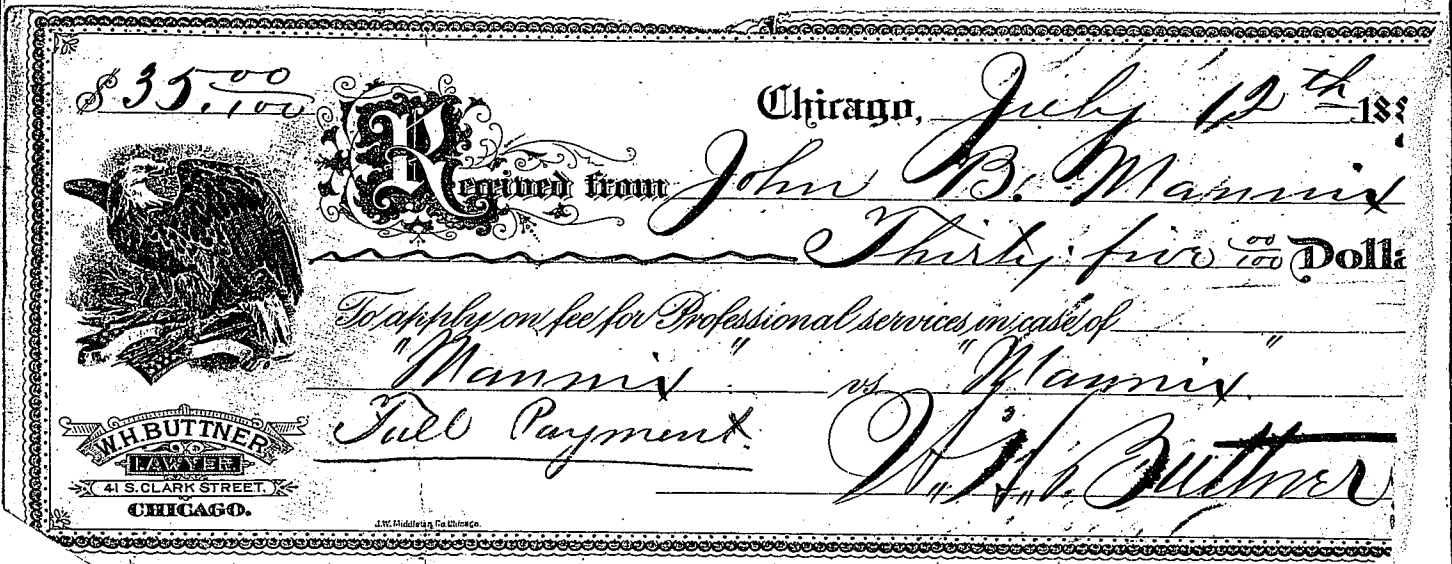 $35.00/100
Chicago, July 12th 188
Received from John B. Mannix
Thirty five 00/100 Doll
To apply on fee for Professional services in case of
"Mannix" vs "Mannix"
Full Payment
W. H. Buttner
W.H. BUTTNER
LAWYER.
41 S. CLARK STREET.
CHICAGO.
J.W. Middleton, Co. Chicago.